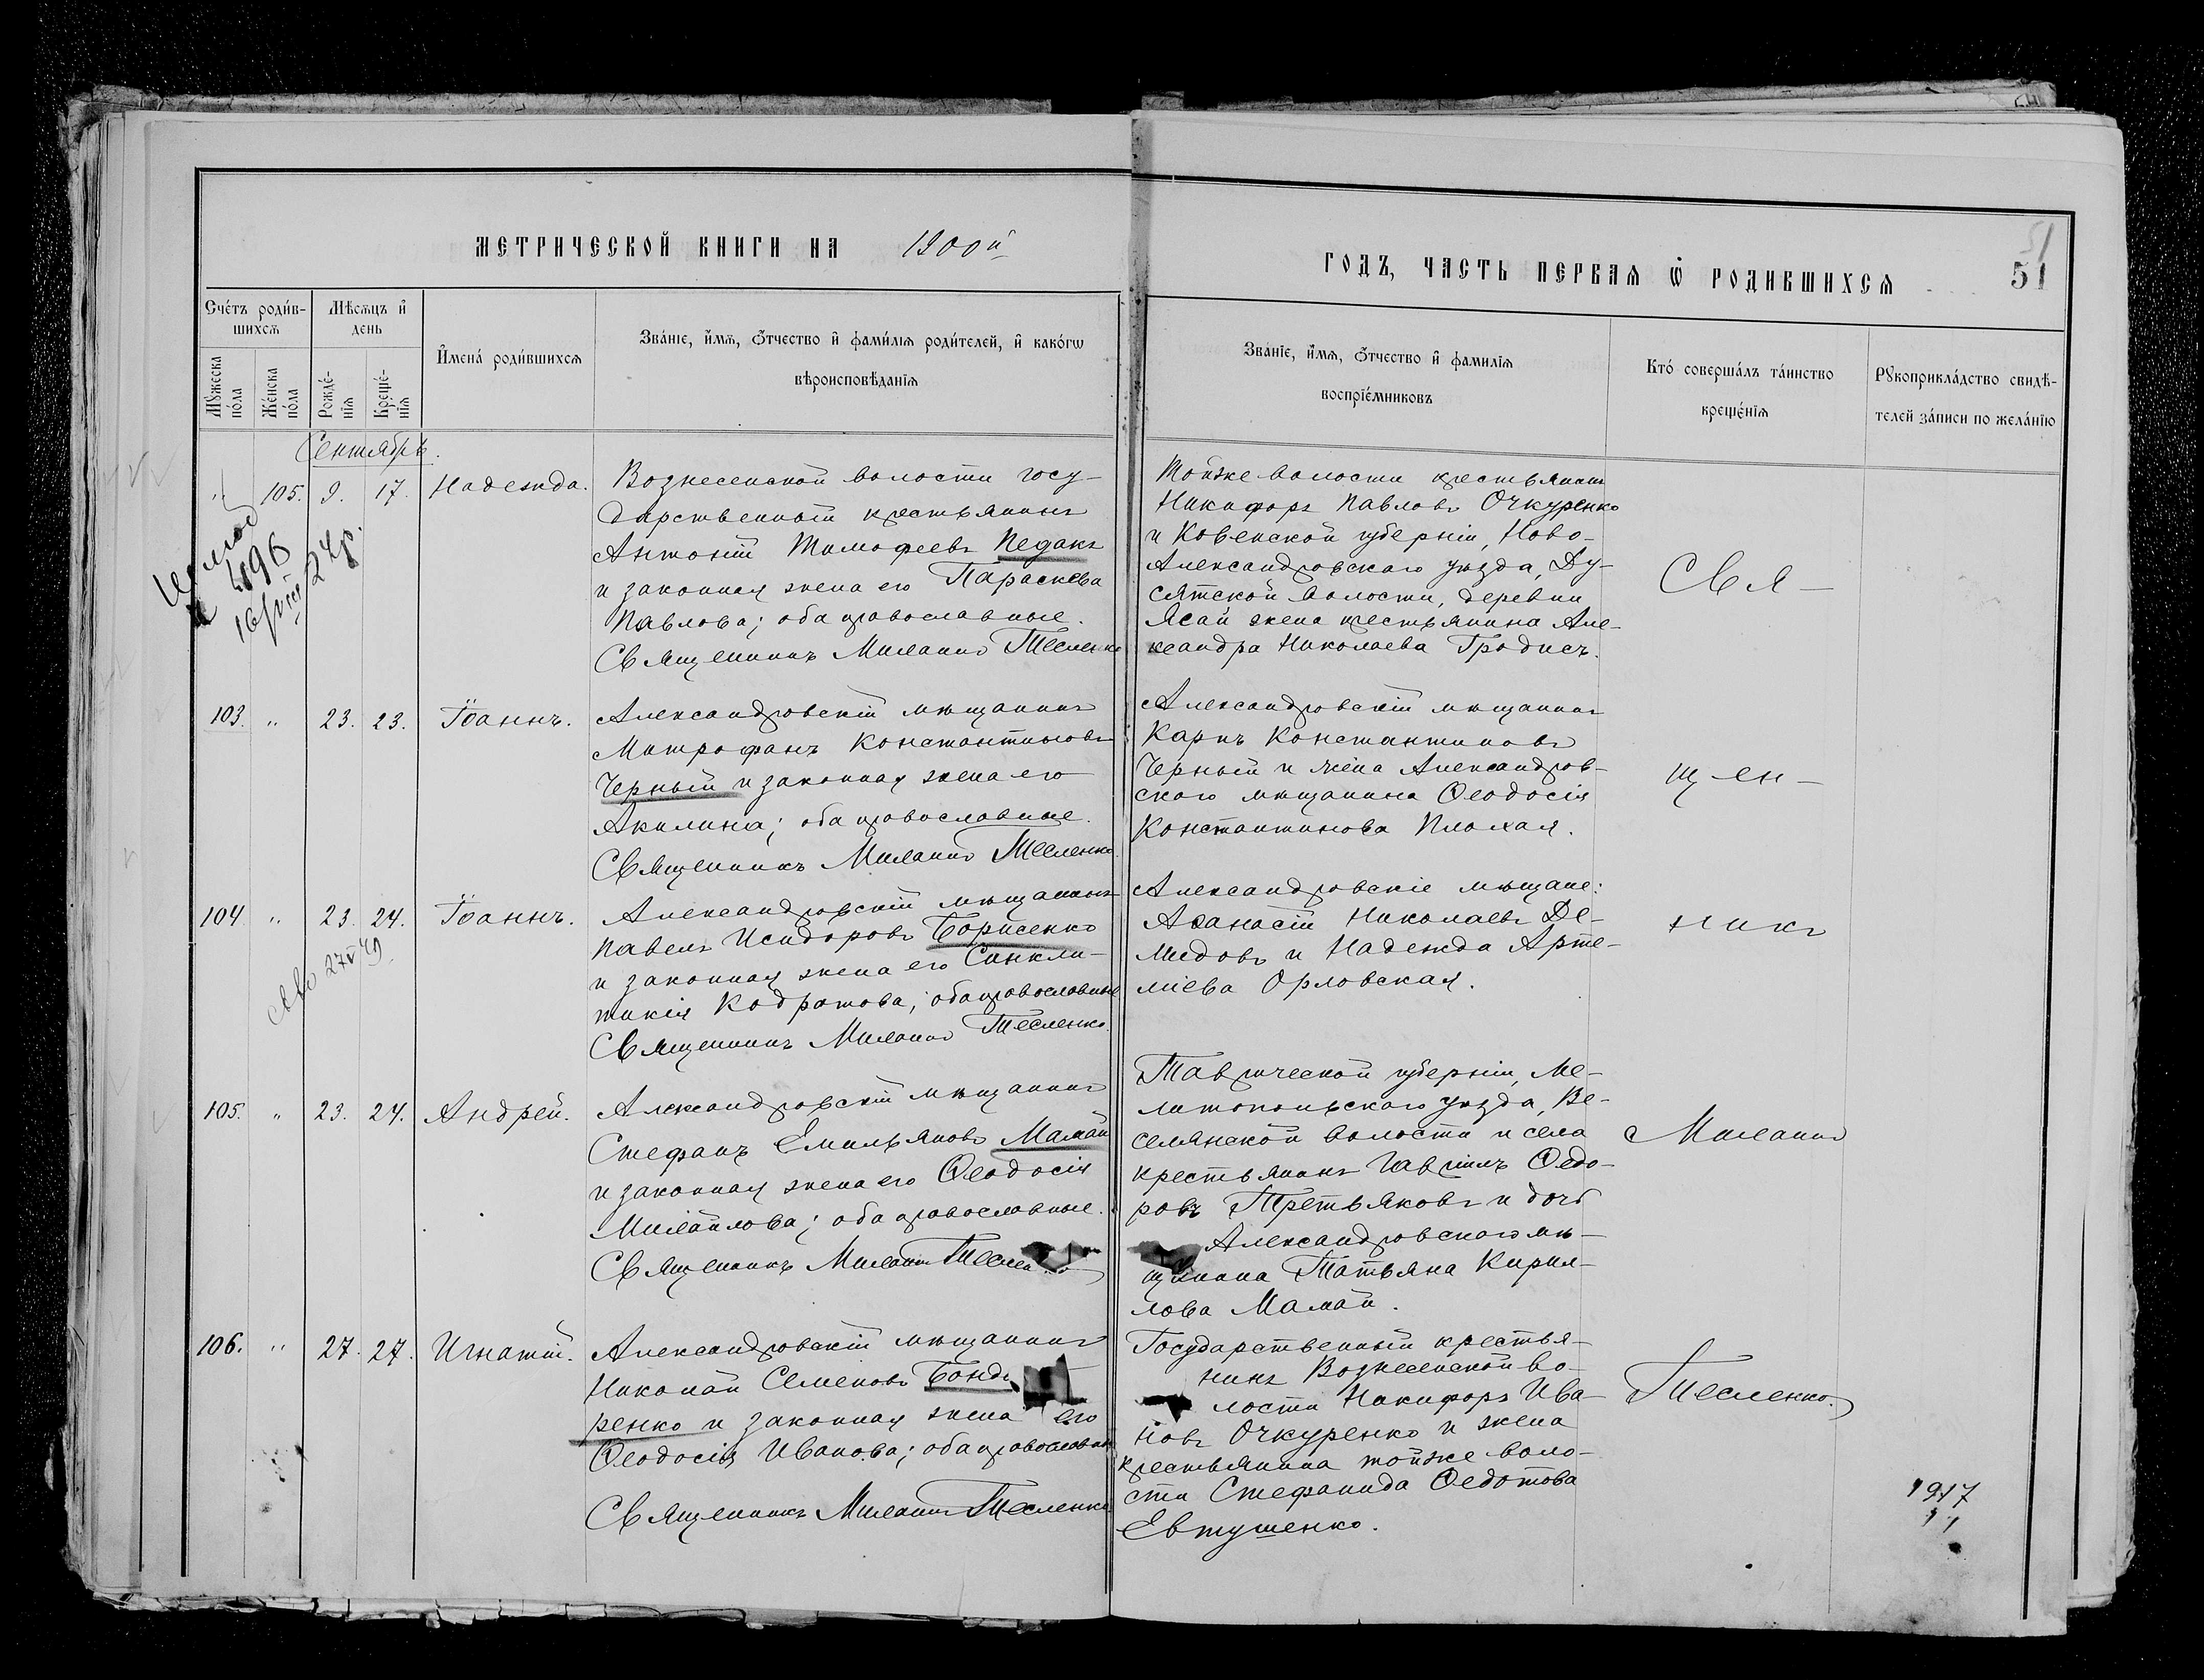 МЕТРИЧЕСКОЙ КНИГИ НА 1900й
ГОДЪ, ЧАСТЬ ПЕРВАЯ Ѡ РОДИВШИХСЯ
51
51
Счетъ родив-
шихся
Мѣсяцъ и
день
Мужеска
пола
Женска
пола
Рожде-
нія
Креще-
нія
Имена родившихся
Званіе, имя, отчество и фамилія родителей, и какогѡ
вѣроисповѣданія
Званіе, имя, отчество и фамилія
воспріемниковъ
Кто совершалъ таинство
крещенія
Рукоприкладство свидѣ-
телей записи по желанію
Сентябрь.
" 105. 9. 17. Надежда.
Вознесенской волости госу-
дарственный крестьянинъ
Антоній Тимофеевъ Педакъ
и законная жена его Параскева
Павлова; оба православные.
Священникъ Милапій Тесленко
Тойже волости крестьянинъ
Никифоръ Павловъ Очкуренко
и Ковенской губерніи, Ново-
Александровскаго уѣзда, Ду-
сятской волости, деревни
Ясай жена крестьянина Але-
ксандра Николаева Гродисъ.
Свя-
4096
16/VIII 24р.
103. " 23. 23. Іоаннъ.
Александровскій мѣщанинъ
Митрофанъ Константиновъ
Черный и законная жена его
Акилина; оба православные.
Священникъ Тесленко
Александровскій мѣщанинъ
Карпъ Константиновъ
Черный и жена Александров-
скаго мѣщанина Ѳеодосія
Константинова Плохая.
щен-
104. " 23. 24. Іоаннъ.
27
Александровскій мѣщанинъ
Павелъ Исидоровъ Борисенко
и законная жена его Синкли-
тикія Кодратова; оба православные
Священникъ Тесленко.
Александровскіе мѣщане:
Аѳанасій Николаевъ Де-
мидовъ и Надежда Арте-
міева Орловская.
никъ
105. " 23. 24. Андрей.
Александровскій мѣщанинъ
Стефанъ Емильяновъ Мамай
и законная жена его Ѳеодосія
Михайлова; оба православные.
Священникъ
Таврической губерніи, Ме-
литопольскаго уѣзда, Ве-
селянской волости и села
крестьянинъ Гавріилъ Ѳедо-
ровъ Третьяковъ и дочь
Александровскаго мѣ-
щанина Татьяна Кирил-
лова Мамай.
106. " 27. 27. Игнатій.
Александровскій мѣщанинъ
Николай Семеновъ Бонда
ренко и законная жена его
Ѳеодосія Иванова; оба православные
Священникъ Тесленко
Государственный крестья-
нинъ Вознесенской во-
лости Никифоръ Ива-
новъ Очкуренко и жена
крестьянина тойже воло-
сти Стефанида Ѳедотова
Евтушенко.
Тесленко.
1917